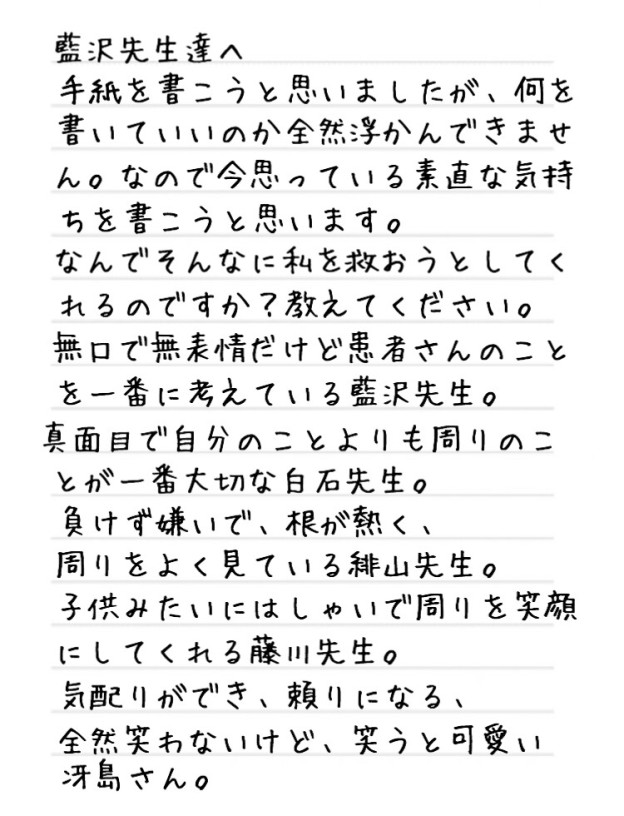 藍沢先生達へ
手紙を書こうと思いましたが、何を
書いていいのか全然浮かんできませ
ん。なので今思っている素直な気持
ちを書こうと思います。
なんでそんなに私を救おうとしてく
れるのですか？教えてください。
無口で無表情だけど患者さんのこと
を一番に考えている藍沢先生。
真面目で自分のことよりも周りのこ
とが一番大切な白石先生。
負けず嫌いで、根が熱く、
周りをよく見ている緋山先生。
子供みたいにはしゃいで周りを笑顔
にしてくれる藤川先生。
気配りができ、頼りになる、
全然笑わないけど、笑うと可愛い
冴島さん。